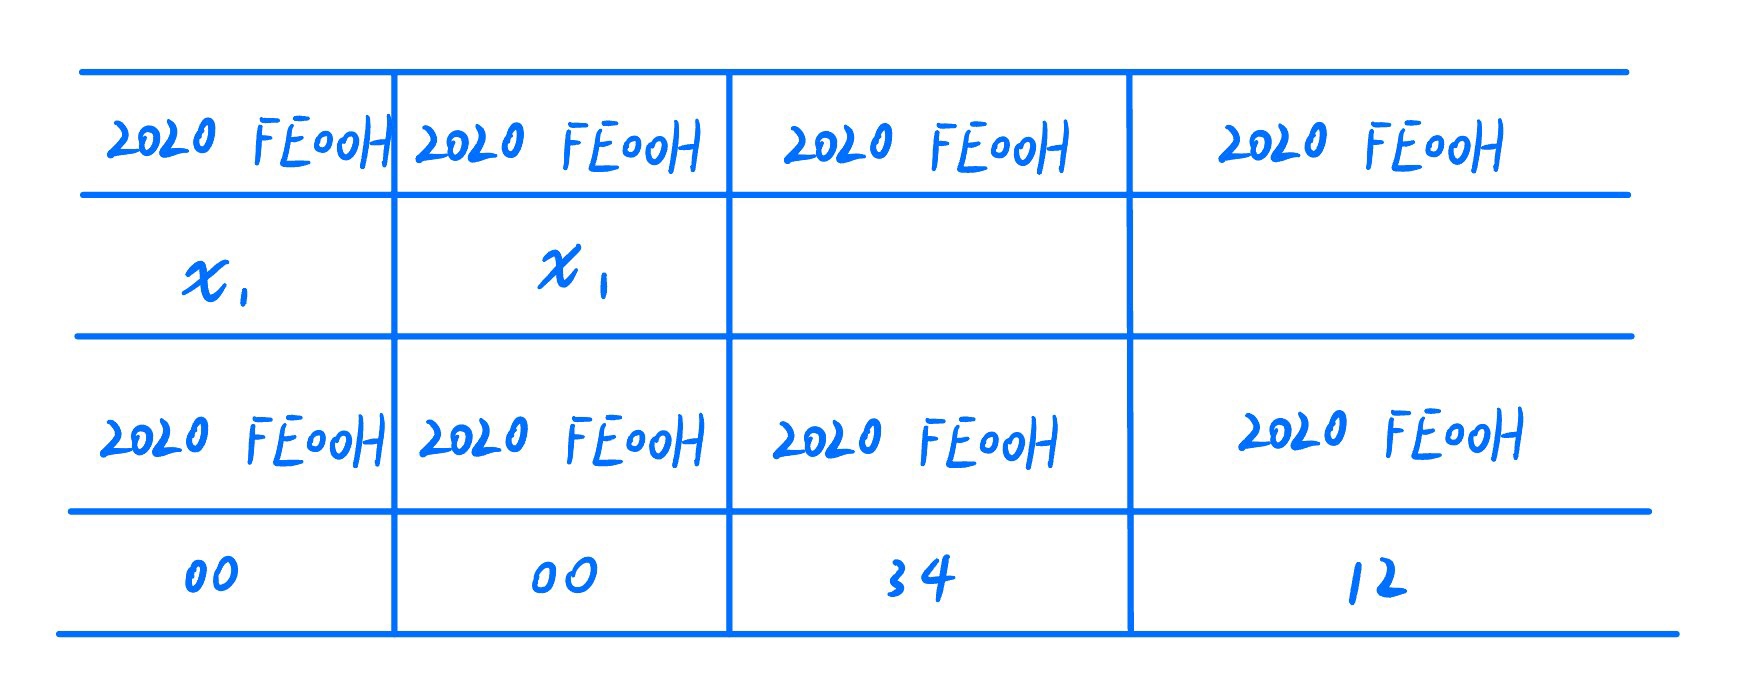 2020 FE00H 2020 FE00H 2020 FE00H 2020 FE00H
x₁ x₁
2020 FE00H 2020 FE00H 2020 FE00H 2020 FE00H
00 00 34 12